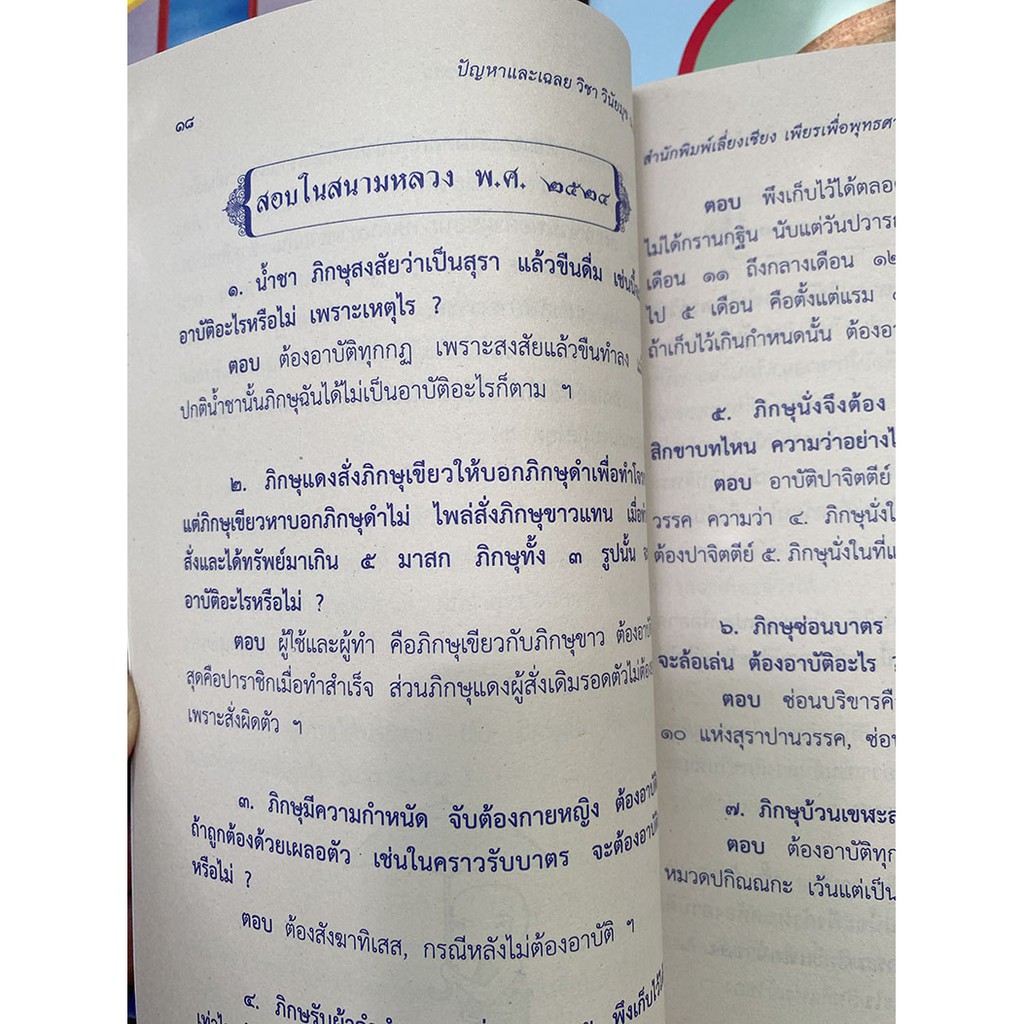 ปัญหาและเฉลย วิชา วินัยมุข
๑๘
สอบในสนามหลวง พ.ศ. ๒๕๒๔
๑. น้ำชา ภิกษุสงสัยว่าเป็นสุรา แล้วขืนดื่ม เช่นนี้
อาบัติอะไรหรือไม่ เพราะเหตุไร ?
ตอบ ต้องอาบัติทุกกฏ เพราะสงสัยแล้วขืนทำลง
ปกติน้ำชานั้นภิกษุฉันได้ไม่เป็นอาบัติอะไรก็ตาม ฯ
๒. ภิกษุแดงสั่งภิกษุเขียวให้บอกภิกษุดำเพื่อทำ
แต่ภิกษุเขียวหาบอกภิกษุดำไม่ ไพล่สั่งภิกษุขาวแทน เมื่อ
สั่งและได้ทรัพย์มาเกิน ๕ มาสก ภิกษุทั้ง ๓ รูปนั้น
อาบัติอะไรหรือไม่ ?
ตอบ ผู้ใช้และผู้ทำ คือภิกษุเขียวกับภิกษุขาว ต้อง
สุดคือปาราชิกเมื่อทำสำเร็จ ส่วนภิกษุแดงผู้สั่งเดิมรอดตัวไม่ต้อง
เพราะสั่งผิดตัว ฯ
๓. ภิกษุมีความกำหนัด จับต้องกายหญิง ต้อง
ถ้าถูกต้องด้วยเผลอตัว เช่นในคราวรับบาตร จะต้อง
หรือไม่ ?
ตอบ ต้องสังฆาทิเสส, กรณีหลังไม่ต้องอาบัติ ฯ
๔. ภิกษุรับผ้า พึงเก็บไว้
สำนักพิมพ์เลี่ยงเชียง เพียรเพื่อพุทธ
ตอบ พึงเก็บไว้ได้ตลอด
ไม่ได้กรานกฐิน นับแต่วัน
เดือน ๑๑ ถึงกลางเดือน ๑๒
ไป ๕ เดือน คือตั้งแต่แรม
ถ้าเก็บไว้เกินกำหนดนั้น ต้อง
๕. ภิกษุนั่งจึงต้อง
สิกขาบทไหน ความว่าอย่าง
ตอบ อาบัติปาจิตตีย์
วรรค ความว่า ๔. ภิกษุนั่ง
ต้องปาจิตตีย์ ๕. ภิกษุนั่งในที่
๖. ภิกษุซ่อนบาตร
จะล้อเล่น ต้องอาบัติอะไร
ตอบ ซ่อนบริขาร
๑๐ แห่งสุราปานวรรค, ซ่อน
๗. ภิกษุบ้วนเขฬะ
ตอบ ต้องอาบัติ
หมวดปกิณณกะ เว้นแต่เป็น